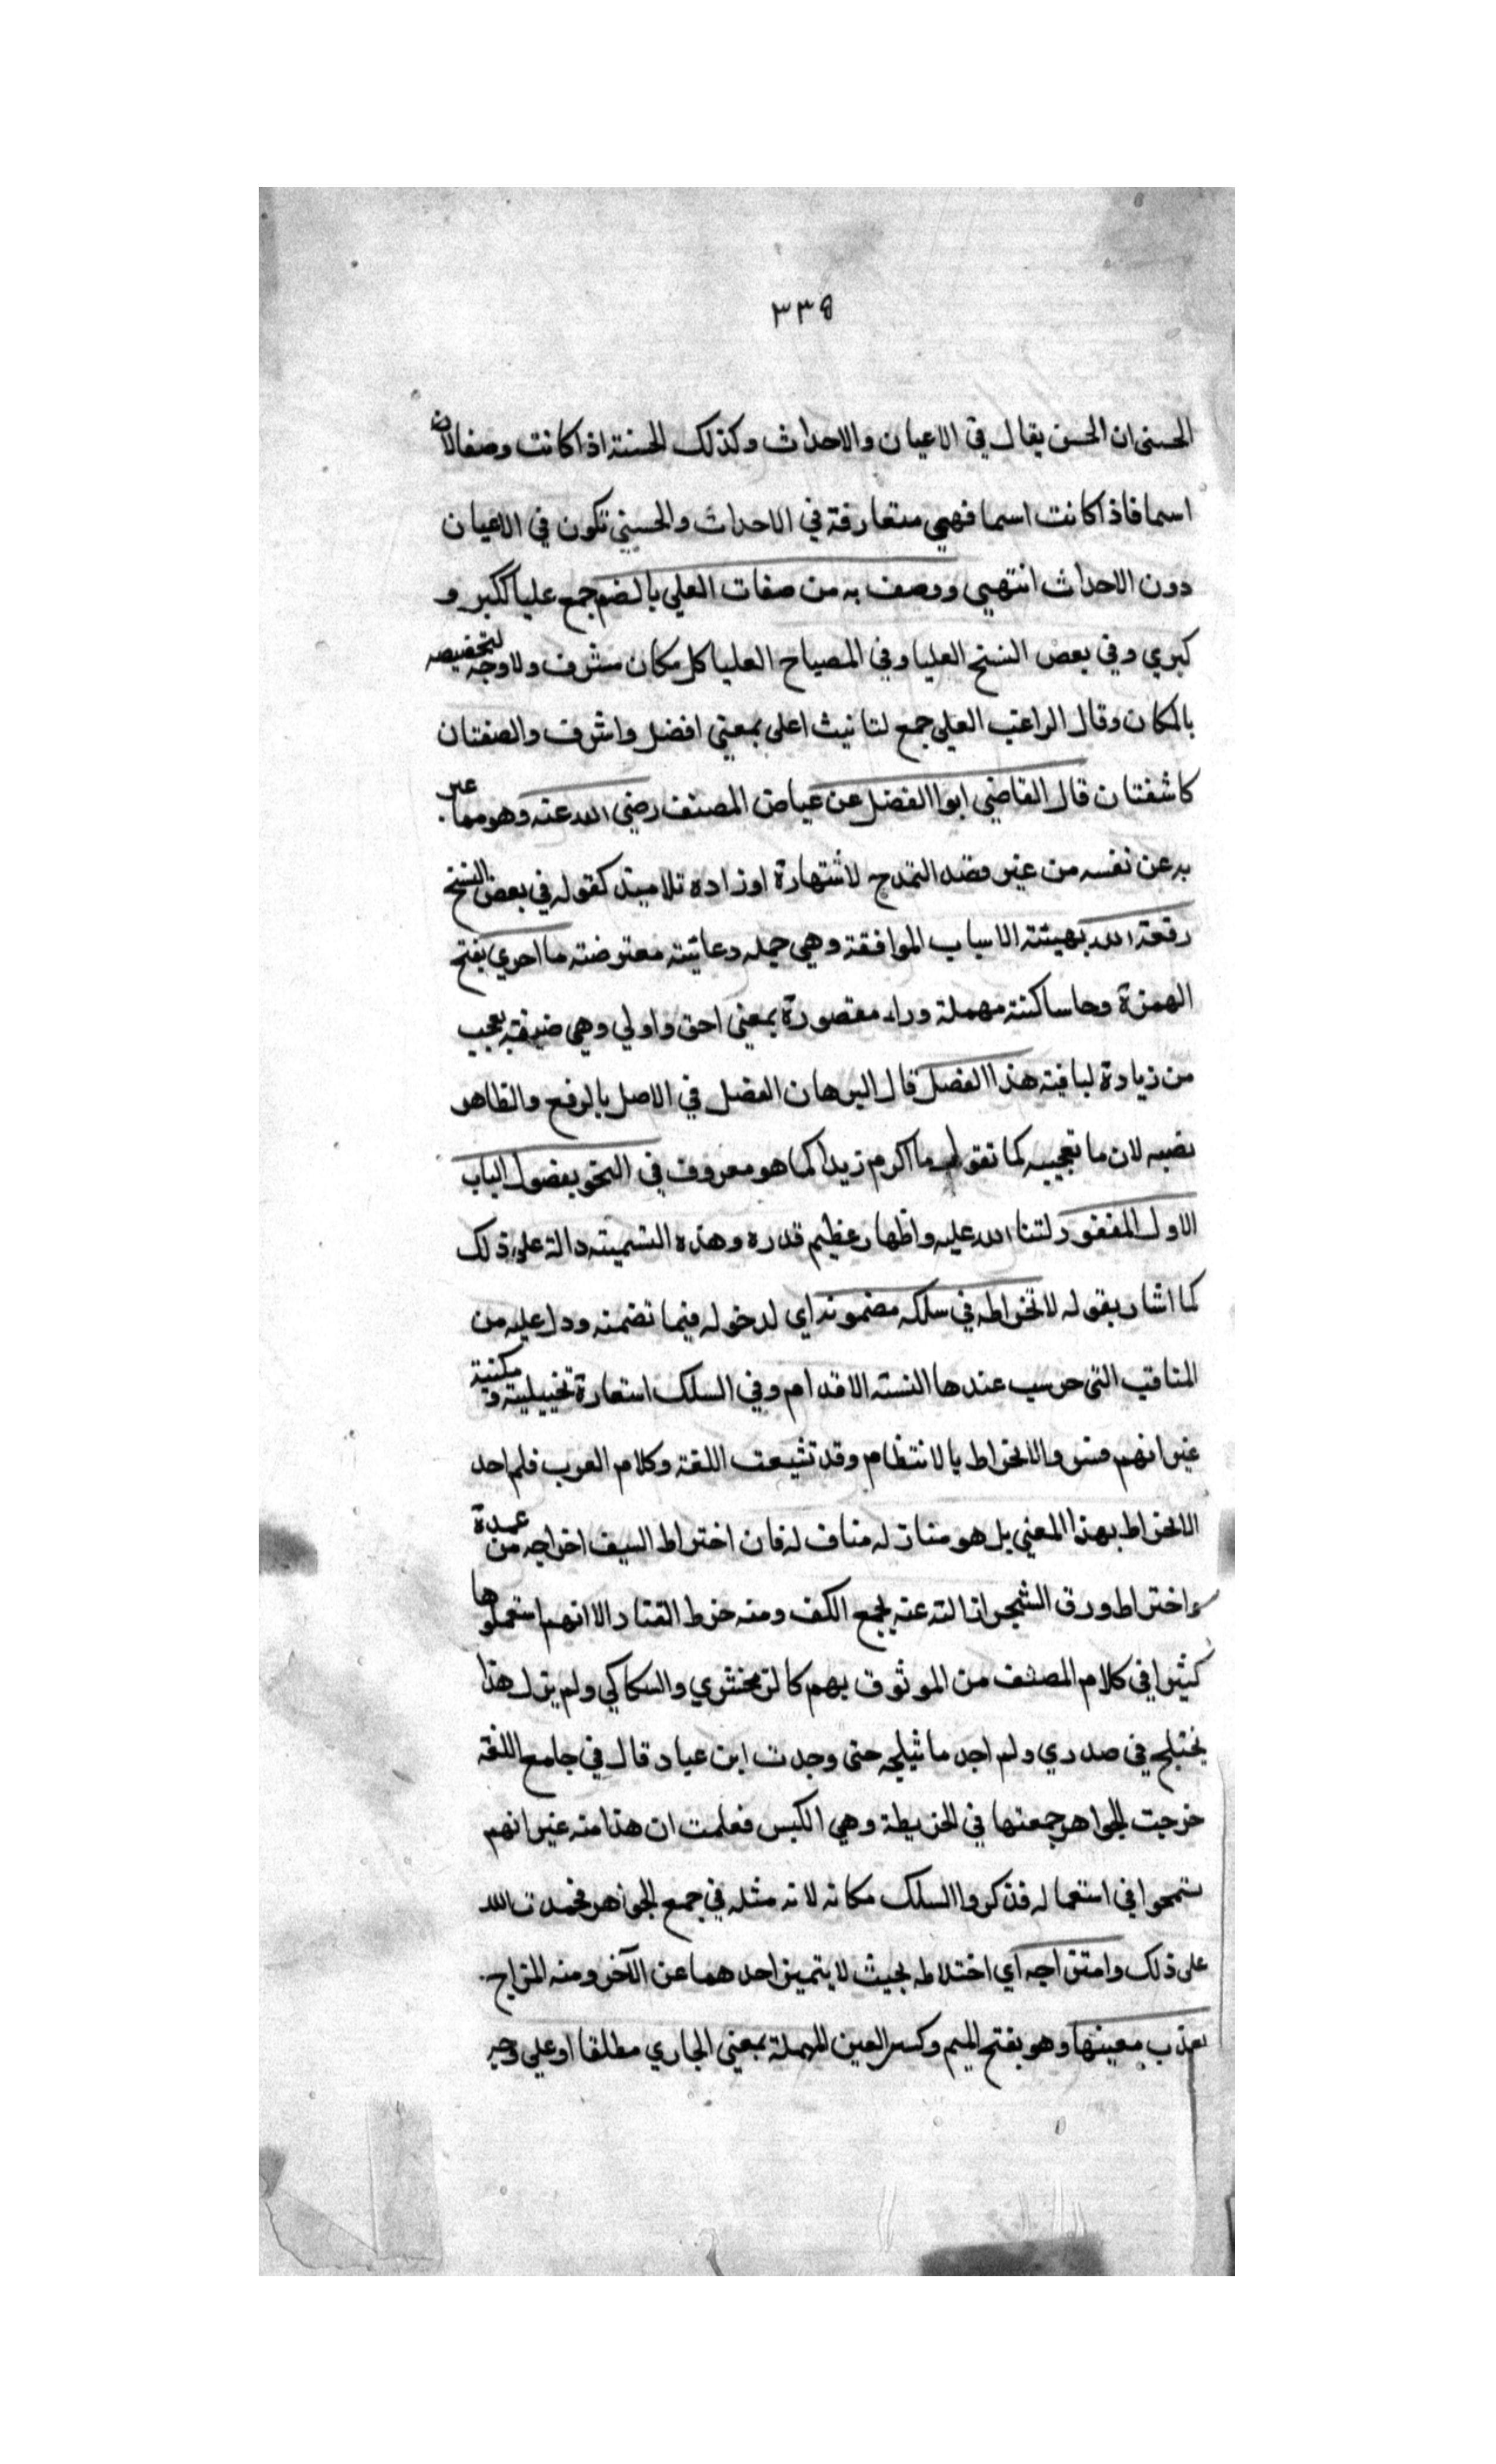 ٣٣٥
الحسنى ان الحسن يقال في الاعيان والاحداث وكذلك الحسنة اذا كانت وصفا لان
اسما فاذا كانت اسما فهي متعارفة في الاحداث والحسني تكون في الاعيان
دون الاحداث انتهيى ووصف به من صفات العلي بالضم جمع عليا ككبر و
كبري وفي بعض النسخ العليا وفي المصباح العليا كل مكان مشرف ولا وجه لتخصيصه
بالمكان وقال الراغب العلى جمع لتانيث اعلى بمعني افضل واشرف والصفتان
كاشفتان قال القاضي ابوا الفضل عن عياض المصنف رضي الله عنه وهو مما عبر
به عن نفسه من غير قصد التمدح لاشتهارة او زاده تلاميذ كقوله في بعض النسخ
وقعة الله بهيئته الاسباب الموافقة وهي جمله دعائيته معترضته ما احري بفتح
الهمزة وحا ساكنة مهملة وراء مقصورة بمعني احق واولي وهي ضيفه تعجب
من زيادة لياقيته هذا الفصل قال البرهان الفضل في الاصل بالرفع والظاهر
نصبه لان ما تعجيبه كما تقول ما اكرم زيدا كما هو معروف في النحو بفصول الباب
الاول المغفور لثنا الله عليه واظهار عظيم قدره وهذه التسميته دالة على ذلك
كما اشار بقوله لانخراطه في سلكه مضمونه اي لدخوله فيما تضمنه ودل عليه من
المناقب التي حرست عندها السنته الاقدام وفي السلك استعارة تخييلية و مكنية
غير انهم فسروا الانخراط بالانتظام وقد تتبعت اللغة وكلام العرب فلم اجد
الانخراط بهذا المعني بل هو مناف له مناف له فان اختراط السيف اخراجه من غمدة
واختراط ورق الشجر ازالته عنه بجمع الكف ومنه خرط القتاد الا انهم استعملوها
كثيرا في كلام المصنف من الموثوق بهم كالزمخشري والسكاكي ولم يزل هذا
يختلج في صدري ولم اجد ما يثلجه حتى وجدت ابن عباد قال في جامع اللغة
خرجت الجواهر جمعتها في الخريطة وهي الكيس فعلمت ان هذا منه غير انهم
تسمحوا في استعماله فذكروا السلك مكانه لانه مثله في جمع الجواهر فحمدت الله
على ذلك وامتزاجه اي اختلاطه بحيث لا يتميز احدهما عن الآخر ومنه المزاج
بعذب معينها وهو بفتح الميم وكسر العين المهملة بمعني الجاري مطلقا او على وجه